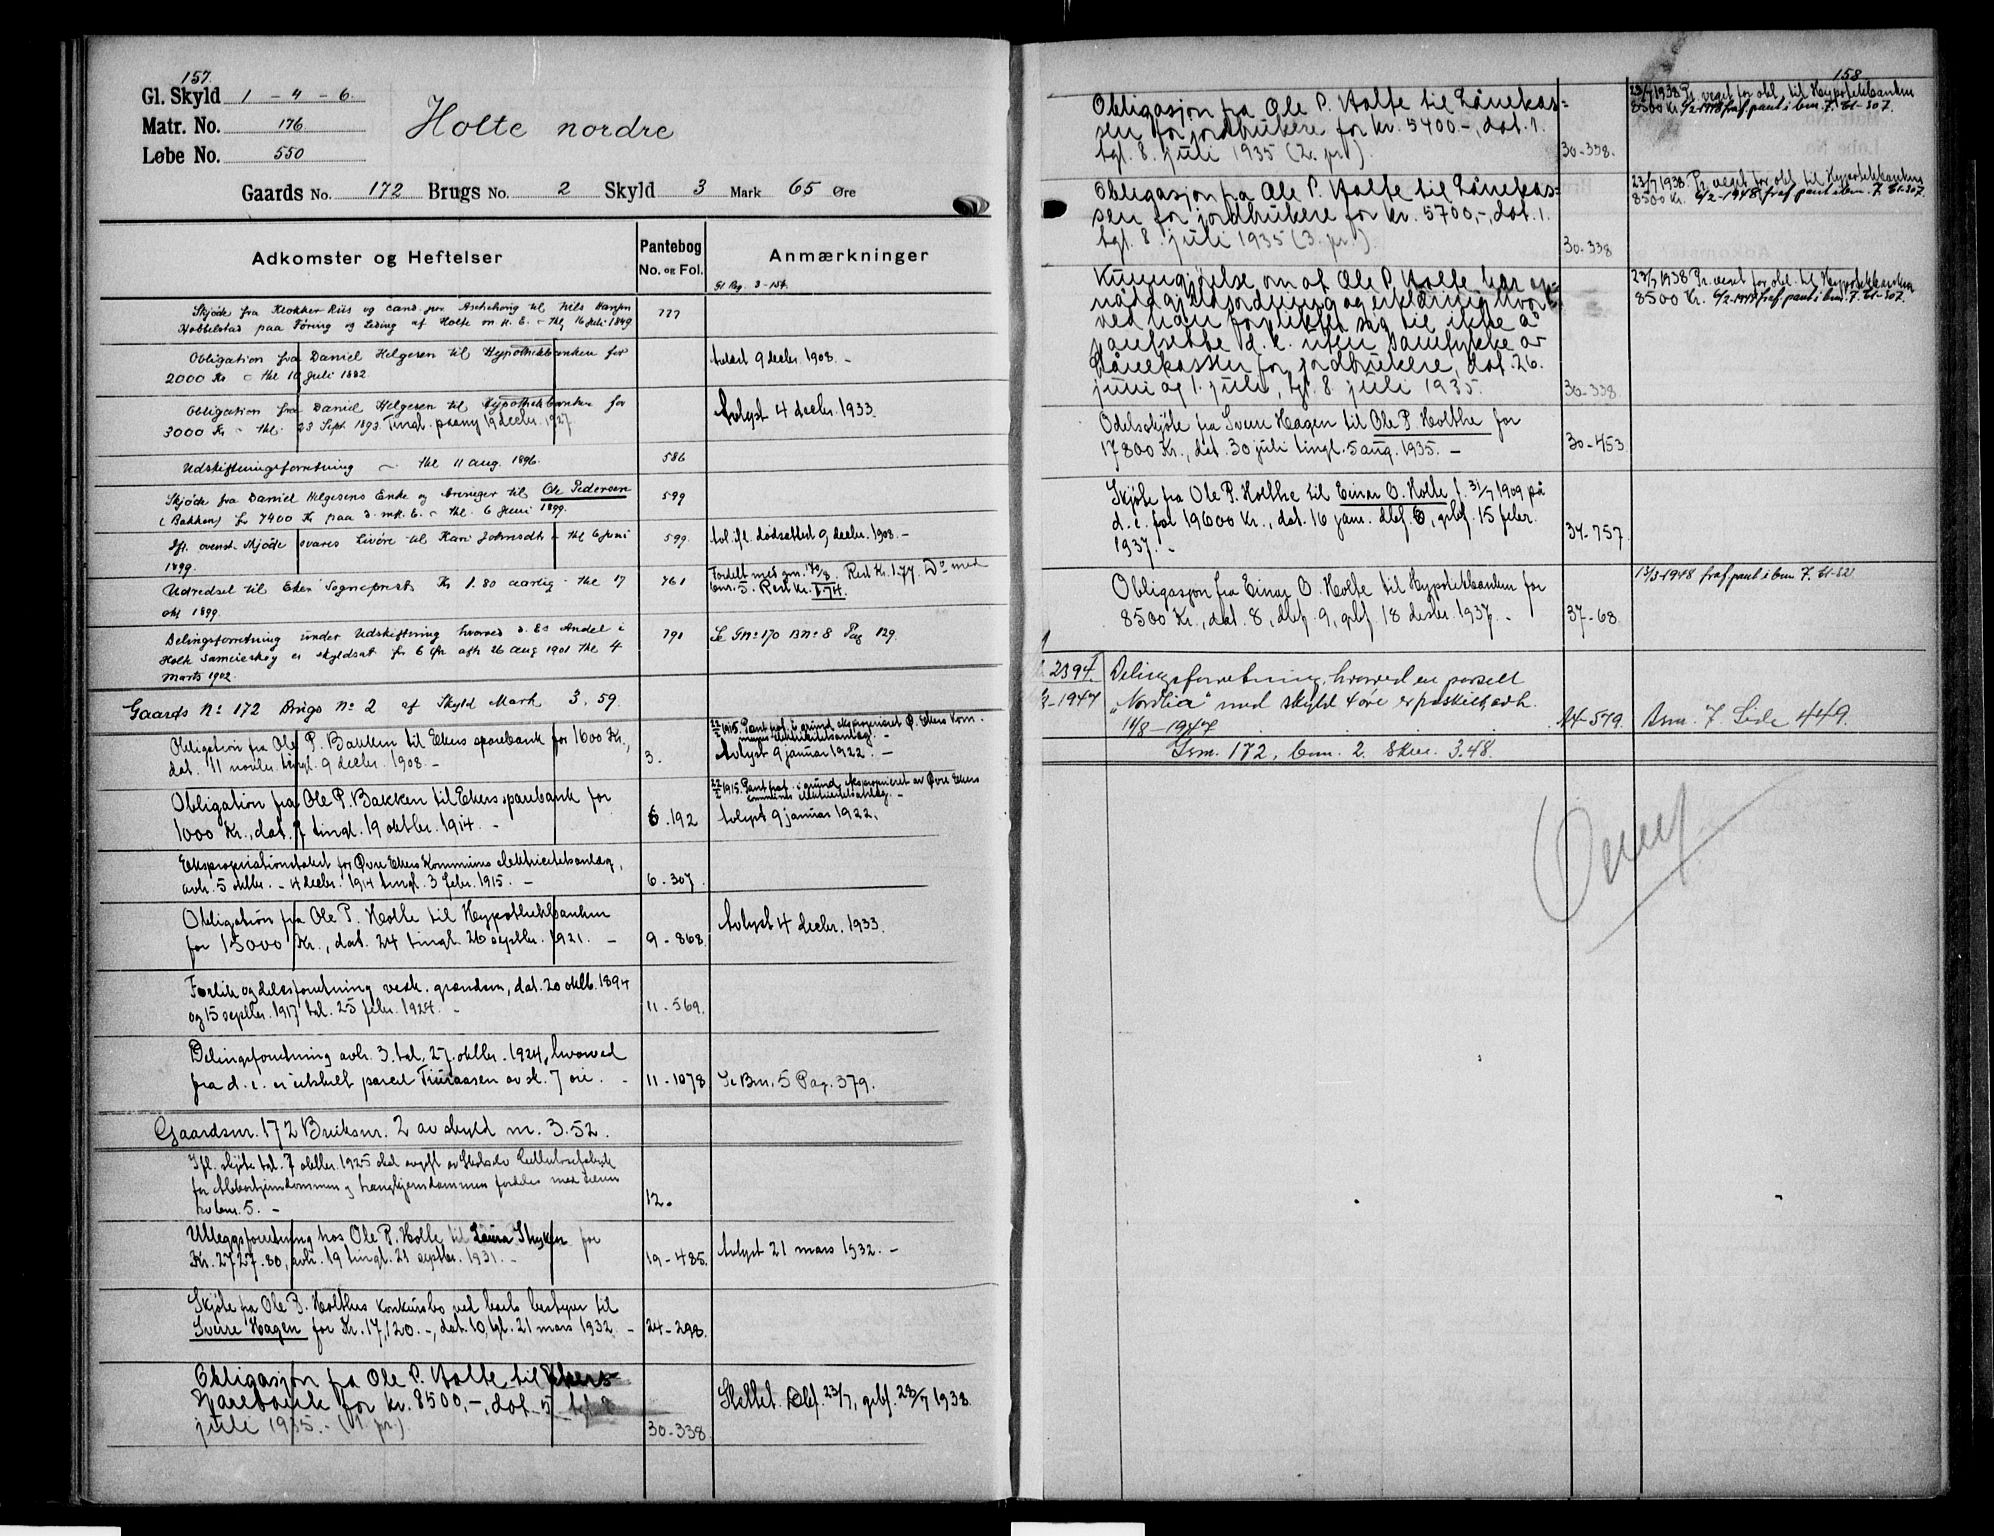 157.
Gl. Skyld 1 - 4 - 6.
Matr. No. 176
Løbe No. 550
Holte nordre
Gaards No. 172 Brugs No. 2 Skyld 3 Mark 65 Øre
Adkomster og Heftelser
Pantebog
No. og Fol.
Anmærkninger
Gl. Reg. 3-154.
Skjøde fra Klokker Riis og cand. jur. til Nils Hansen
Hobbelstad paa og af Holte m. m. E. - thl. 16 Juli 1849
777
Obligation fra Daniel Helgesen til Hypothekbanken for
2000 Kr - thl 10 Juli 1882.
Avlæst 9 decbr. 1908. -
Obligation fra Daniel Helgesen til Hypothekbanken for
3000 Kr - thl. 23 Sept. 1893. Tingl. paany 19 decbr. 1927.
Avlyst 4 decbr. 1933.
Udskiftningsforretning - thl 11 aug. 1896.
586
Skjøde fra Daniel Helgesens Enke og Arvinger til Ole Pedersen
(Bakken) for 7400 Kr paa d. m. fl. E. - thl. 6 Juni 1899.
599
Ifl. ovenst. Skjøde svares Livøre til Kari Johnsdtr - thl 6 Juni
1899.
599.
Avl. ifl. dødsattest 9 decbr. 1908. -
Udredsel til Eker Sogneprest Kr 1.80 aarlig - thl 17
okt 1899.
761
Fordelt med gnr. 170/8. Rest Kr. 1.77. Do med
bnr. 5. Rest kr. 1.74.
Delingsforretning under Udskiftning hvorved d. Es Andel i
Holte Sameieskog er skyldsat for 6 Øre afh 26 aug 1901 thl 4
Marts 1902.
791
Se Gno 170 Bno 8 Pag 129.
Gaards No 172 Brugs No 2 af Skyld Mark 3.59.
Obligation fra Ole P. Bakken til Ekers sparebank for 1600 Kr.,
dat. 11 novbr. tingl. 9 decbr. 1908. -
3.
1915. Pant fraf. i grund eksproprieret Ø. Ekers Kom-
munes elektricitetsanlæg. -
Avlyst 9 januar 1922. -
Obligation fra Ole P. Bakken til Ekers sparebank for
1000 Kr., dat. 7 tingl. 19 oktbr. 1914. -
6.192
1915. Pant fraf. i grund eksproprieret av Øvre Ekers
communes elektricitetsanlæg. -
Avlyst 9 januar 1922.
Ekspropriationstakst for Øvre Ekers Kommunes elektricitetsanlæg,
avh. 5 oktbr. - 4 decbr. 1914 tingl. 3 febr. 1915. -
6.307.
Obligation fra Ole P. Holte til Hypothekbanken
for 15000 Kr., dat. 24 tingl. 26 septbr. 1921. -
9-868.
Avlyst 4 decbr. 1933.
Forlik og delesforretning vedk. grændsen, dat. 20 oktb. 1894
og 15 septbr. 1917 tgl. 25 febr. 1924. -
11-569.
Delingsforretning avh. 3. tgl. 27. oktbr. 1924, hvorved
fra d. e. er utskilt parcel Tiuraasen av sk. 7 øre. -
11-1078
Se Bnr. 5 Pag. 379.
Gaardsnr. 172 Bruksnr. 2 av skyld m. 3.52.
Ifl. skjøte tgl. 7 oktbr. 1925 skal avgift av Skotselv Cellulosefabrik
for og trangtjerndammen fordeles med
av bnr. 5. -
12.
Utleggsforretning hos Ole P. Holte til Laura for
Kr. 2727.80, avh. 19 tingl. 21 septbr. 1931. -
19-485.
Avlyst 21 mars 1932. -
Skjøte fra Ole P. Holthes konkursbo ved boets bestyrer til
Sverre Hagen for Kr. 17,120.-, dat. 10, tgl. 21 mars 1932. -
24-298.
Obligasjon fra Ole P. Holte til Ekers
Sparebank for kr. 8500,-, dat. 5 tgl. 8
juli 1935. - (1. pr.)
30-338.
Slettet. Dbf. 23/7, grbf. 28/7 1938.
158
Obligasjon fra Ole P. Holte til Lånekas-
sen for jordbrukere for kr. 5400.-, dat. 1.
tgl. 8. juli 1935 (2. pr.).
30-338.
23/7 1938 Pr. veget for obl. til Hypotekbanken
8500 Kr. 6/2-1948 fraf. pant i bnr. 7. 61-307.
Obligasjon fra Ole P. Holte til Lånekas-
sen for jordbrukere for kr. 5700,-, dat. 1.
tgl. 8. juli 1935 (3. pr.).
30-338
23/7 1938. Pr. veget for obl. til Hypotekbanken
8500 Kr. 6/2-1948 fraf. pant i bnr. 7. 61-307.
Kunngjørelse om at Ole P. Holte har op-
nådd gjeldsordning og erklæring hvor-
ved han forplikter sig til ikke å
pantsette d. e. uten samtykke av
Lånekassen for jordbrukere, dat. 26.
juni og 1. juli, tgl. 8. juli 1935.
30-338
23/7 1938 Pr. veget for obl. til Hypotekbanken
8500 Kr. 6/2-1948 fraf. pant i bnr. 7. 61-307.
Odelsskjøte fra Sverre Hagen til Ole P. Holthe for
17800 Kr., dat. 30 juli tingl. 5 aug. 1935. -
30-453
Skjøte fra Ole P. Holthe til Einar O. Holte f. 31/7 1909 på
d. e. for 19600 Kr., dat. 16 jan. dbf. 6, grbf. 15 febr.
1937. -
34-757
Obligasjon fra Einar O. Holte til Hypotekbanken for
8500 Kr., dat. 8, dbf. 9, grbf. 18 desbr. 1937. -
37-68.
15/3-1948 fraf. pant i bnr. 7. 61-521
2394
-1947
Delingsforretning, hvorved en parsell
"Nordlia" med skyld 4 øre er fraskilt, avh.
14/8-1947
A4-579.
Bnr. 7 Side 449.
Gnr. 172, bnr. 2. Skm. 3.48.